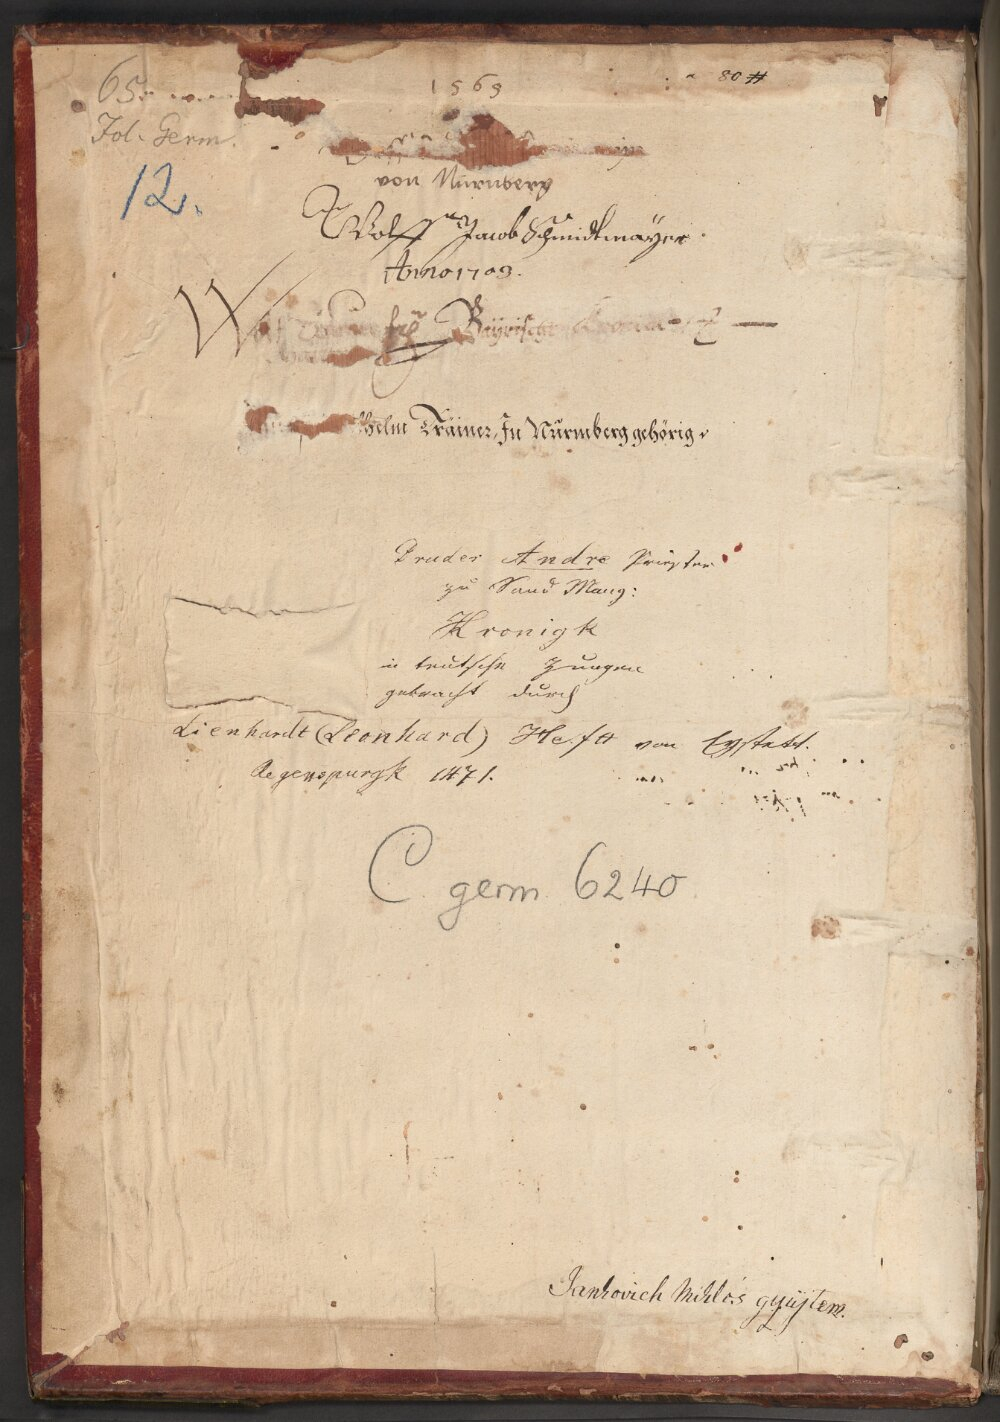 65.
1563
80 #
Fol. Germ.
12.
von Nürnberg
Wolff Jacob Schmidtmayer.
Anno 1703.
Bayrische
helm Trainer, In Nürmberg gehörig.
Bruder Andre Priester
zu Sand Mang:
Kronigk
in teutsche Zungen
gebracht durch
Lienhardt (Leonhard) Hefft von Eystett.
Regenspurgk 1471.
C germ. 6240
Jankovich Miklós gyüjtem.